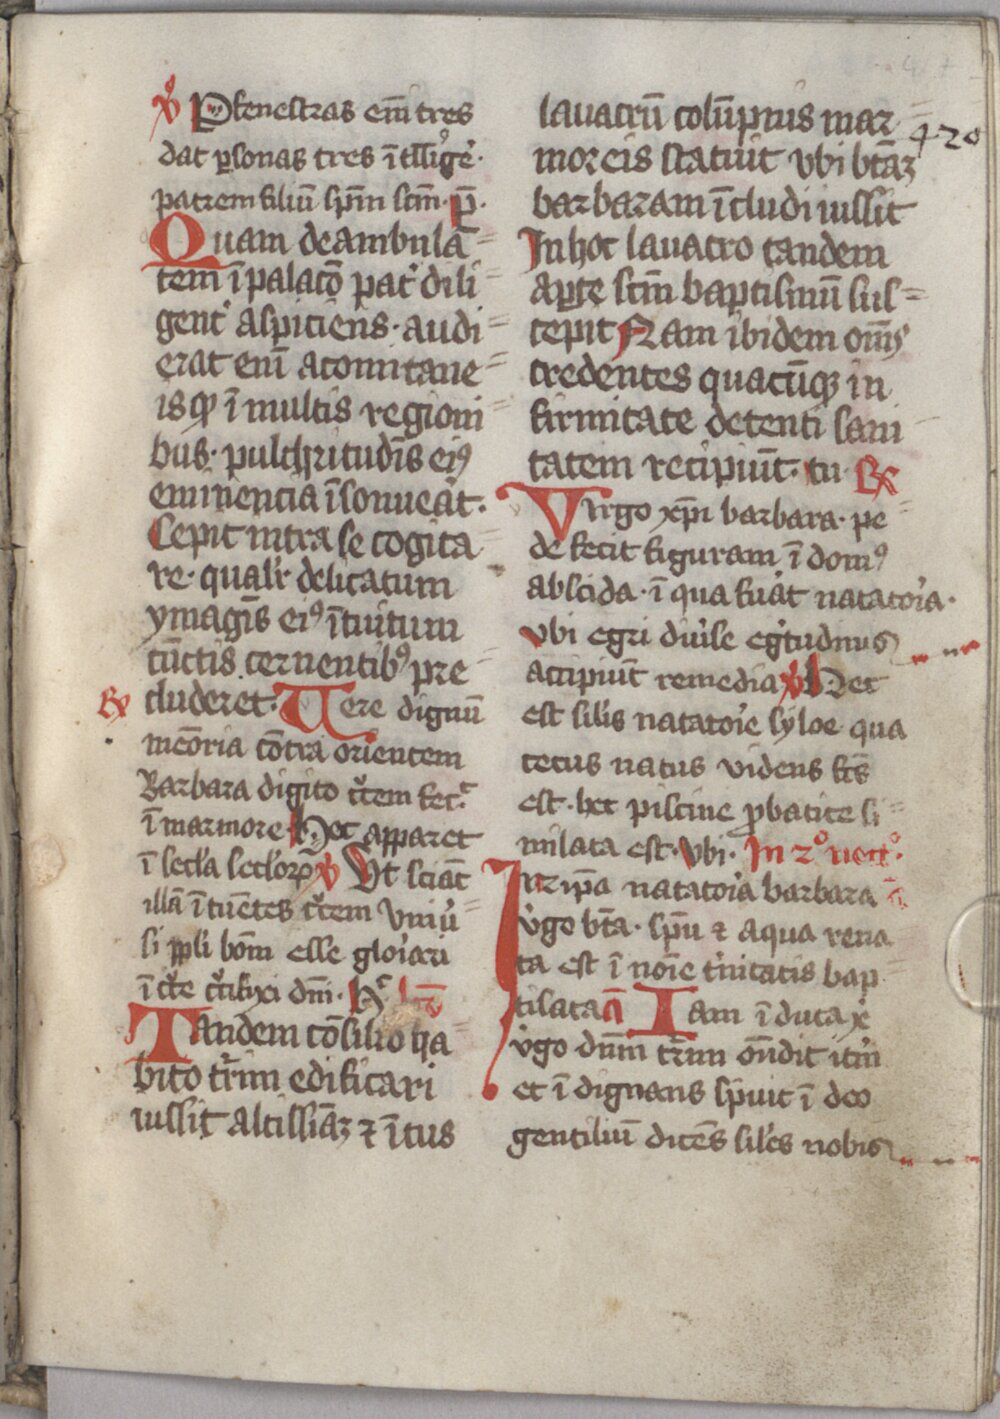 ℣ P fenestras em̄ tres
dat ꝑsonas tres ītellige͛·
patrem filiū sp̄m sc̄m· p̄·
Quam deambula
tem ī palac̄o pat͛ dili
gent͛ aspiciens· audi
erat enī a comitane
is qꝫ ī multis regioni
bus· pulchritudīs eiꝰ
eminencia īsonueāt·
Cepit intra se cogita
re· qualr̄ delicatum
ymagīs eiꝰ ītuitum
cūctis cernentibꝰ pre
cluderet· ℟ Vere dignū
meōria cōtra orientem
Barbara digito cͬcem fec͛
ī marmore Hoc apparet
ī secl'a seclorꝝ ℣ Ut sciāt
illā ītuētes cͬcem vniu͛
si ppl̄i bōm esse gloīari
ī cͬce cͬcifixi dn̄i·
Tandem cōsilio ha
bito tr̄rim edificari
iussit altissiāꝫ ⁊ ītus
lauacrū colūpnis mar
moreis statuit vbi btāꝫ
420
barbaram īcludi iussit
In hoc lauacro tandem
aꝑte sc̄m baptismū sus
cepit Nam ibidem om̄s
credentes quacūqꝫ in
firmitate detenti sani
tatem recipiūt· tu· ℟
Virgo xp̄i barbara· pe
de fecit figuram ī domꝰ
abscida· ī qua fuāt natatoīa·
vbi egri diu͛se eg͛tudinis
accipiūt remedia ℣ Hec
est sil̄is natatoīe syloe qua
cecus natus videns fc̄s
est· hec piscine ꝓbatice si
milata est· Vbi· In 2º noct͛·
In ip̄a natatoīa barbara
v͛go bt̄a· sp̄u ⁊ aqua rena
ta est ī noīe t͛nitatis bap
tisata a Iam ī ducta x̄
v͛go dn̄m tr̄rim on̄dit it͛m
et ī dignans sp̄uit ī deo
gentiliū dicēs sil̄es nobis